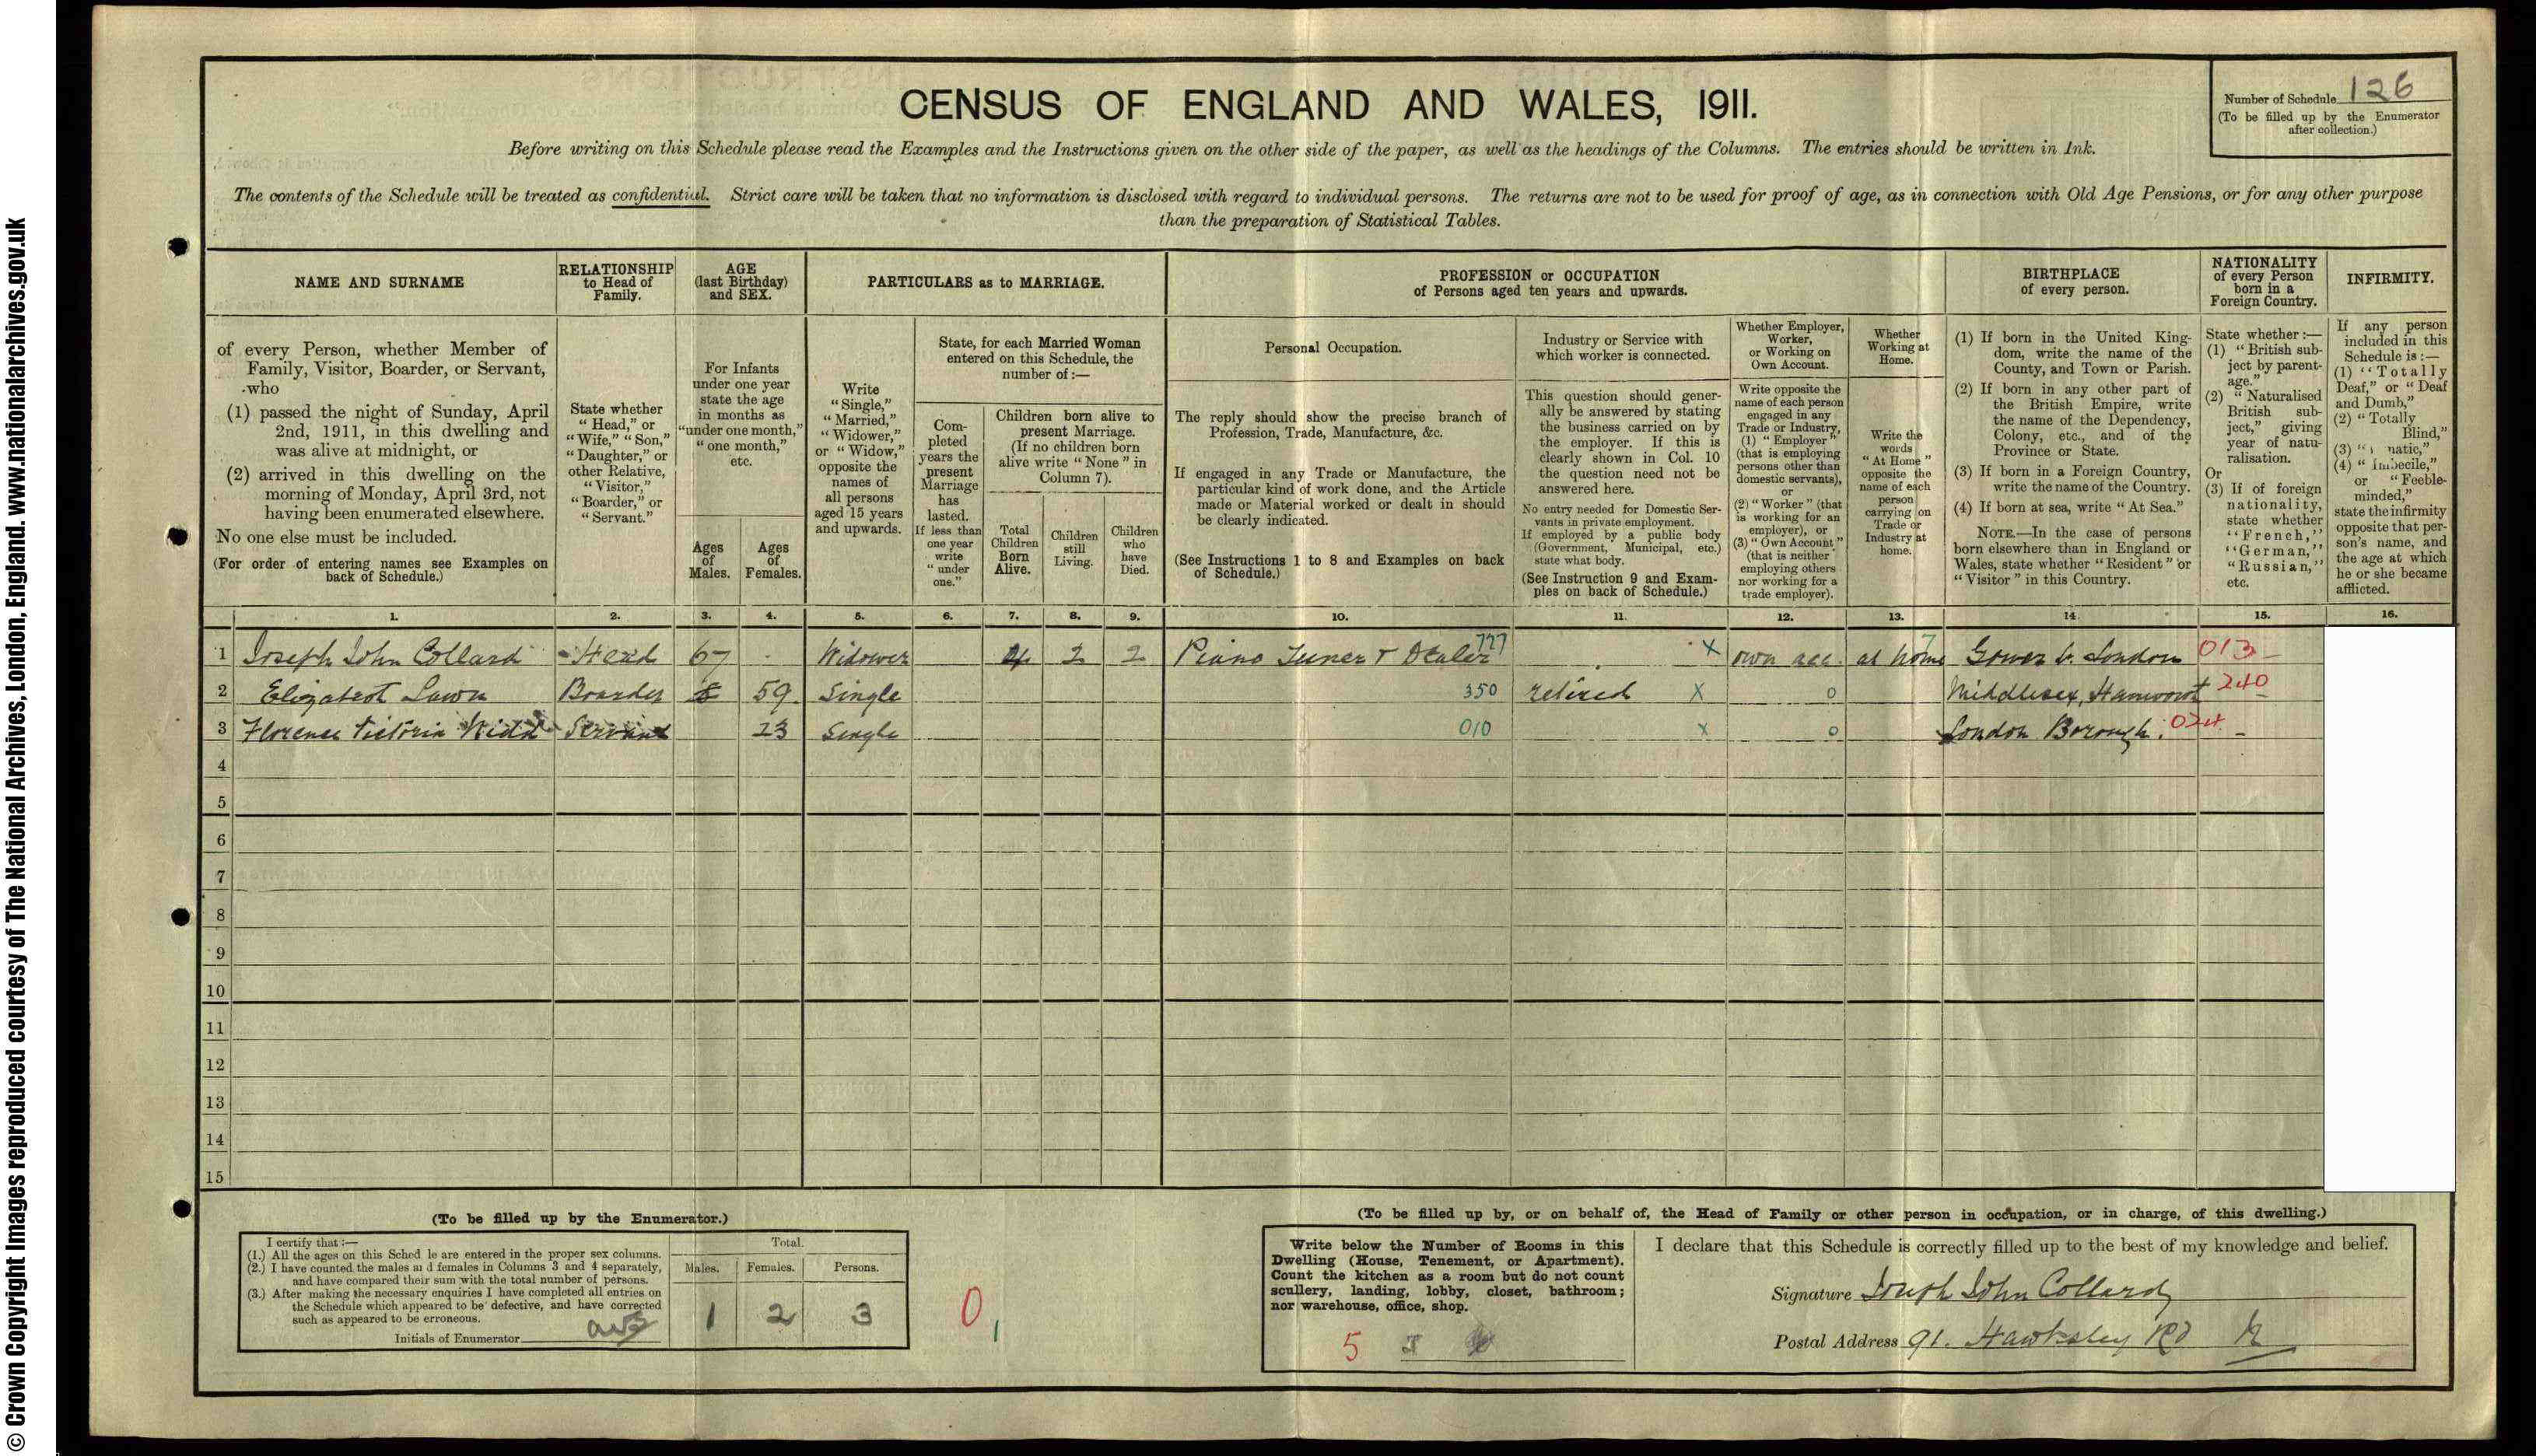 CENSUS OF ENGLAND AND WALES, 1911.
Number of Schedule 126
(To be filled up by the Enumerator
after collection.)
Before writing on this Schedule please read the Examples and the Instructions given on the other side of the paper, as well as the headings of the Columns. The entries should be written in Ink.
The contents of the Schedule will be treated as confidential. Strict care will be taken that no information is disclosed with regard to individual persons. The returns are not to be used for proof of age, as in connection with Old Age Pensions, or for any other purpose
than the preparation of Statistical Tables.
NAME AND SURNAME
of every Person, whether Member of
Family, Visitor, Boarder, or Servant,
who
(1) passed the night of Sunday, April
2nd, 1911, in this dwelling and
was alive at midnight, or
(2) arrived in this dwelling on the
morning of Monday, April 3rd, not
having been enumerated elsewhere.
No one else must be included.
(For order of entering names see Examples on
back of Schedule.)
RELATIONSHIP
to Head of
Family.
State whether
"Head," or
"Wife," "Son,"
"Daughter," or
other Relative,
"Visitor,"
"Boarder," or
"Servant."
AGE
(last Birthday)
and SEX.
For Infants
under one year
state the age
in months as
"under one month,"
"one month,"
etc.
Ages
of
Males.
Ages
of
Females.
PARTICULARS as to MARRIAGE.
Write
"Single,"
"Married,"
"Widower,"
or "Widow,"
opposite the
names of
all persons
aged 15 years
and upwards.
State, for each Married Woman
entered on this Schedule, the
number of:—
Com-
pleted
years the
present
Marriage
has
lasted.
If less than
one year
write
"under
one."
Children born alive to
present Marriage.
(If no children born
alive write "None" in
Column 7).
Total
Children
Born
Alive.
Children
still
Living.
Children
who
have
Died.
PROFESSION or OCCUPATION
of Persons aged ten years and upwards.
Personal Occupation.
The reply should show the precise branch of
Profession, Trade, Manufacture, &c.
If engaged in any Trade or Manufacture, the
particular kind of work done, and the Article
made or Material worked or dealt in should
be clearly indicated.
(See Instructions 1 to 8 and Examples on back
of Schedule.)
Industry or Service with
which worker is connected.
This question should gener-
ally be answered by stating
the business carried on by
the employer. If this is
clearly shown in Col. 10
the question need not be
answered here.
No entry needed for Domestic Ser-
vants in private employment.
If employed by a public body
(Government, Municipal, etc.)
state what body.
(See Instruction 9 and Exam-
ples on back of Schedule.)
Whether Employer,
Worker,
or Working on
Own Account.
Write opposite the
name of each person
engaged in any
Trade or Industry,
(1) "Employer"
(that is employing
persons other than
domestic servants),
or
(2) "Worker" (that
is working for an
employer), or
(3) "Own Account"
(that is neither
employing others
nor working for a
trade employer).
Whether
Working at
Home.
Write the
words
"At Home"
opposite the
name of each
person
carrying on
Trade or
Industry at
home.
BIRTHPLACE
of every person.
(1) If born in the United King-
dom, write the name of the
County, and Town or Parish.
(2) If born in any other part of
the British Empire, write
the name of the Dependency,
Colony, etc., and of the
Province or State.
(3) If born in a Foreign Country,
write the name of the Country.
(4) If born at sea, write "At Sea."
NOTE.—In the case of persons
born elsewhere than in England or
Wales, state whether "Resident" or
"Visitor" in this Country.
NATIONALITY
of every Person
born in a
Foreign Country.
State whether:—
(1) "British sub-
ject by parent-
age."
(2) "Naturalised
British sub-
ject," giving
year of natu-
ralisation.
Or
(3) If of foreign
nationality,
state whether
"French,"
"German,"
"Russian,"
etc.
INFIRMITY.
If any person
included in this
Schedule is:—
(1) "Totally
Deaf," or "Deaf
and Dumb,"
(2) "Totally
Blind,"
(3) " natic,"
(4) "Imbecile,"
or "Feeble-
minded,"
state the infirmity
opposite that per-
son's name, and
the age at which
he or she became
afflicted.
1. 2. 3. 4. 5. 6. 7. 8. 9. 10. 11. 12. 13. 14. 15. 16.
1 Joseph John Collard Head 67 - Widower 4 2 2 Piano Tuner & Dealer 777 X own acc. at home 7 Gower St. London 013
2 Elizabeth Lawn Boarder 59 Single 350 retired X 0 Middlesex, Hanworth 240
3 Florence Victoria Widd Servant 23 Single 010 X 0 London Borough. 024
4
5
6
7
8
9
10
11
12
13
14
15
(To be filled up by the Enumerator.)
I certify that:—
(1.) All the ages on this Sched le are entered in the proper sex columns.
(2.) I have counted the males and females in Columns 3 and 4 separately,
and have compared their sum with the total number of persons.
(3.) After making the necessary enquiries I have completed all entries on
the Schedule which appeared to be defective, and have corrected
such as appeared to be erroneous.
Initials of Enumerator
Total.
Males. Females. Persons.
1 2 3
0,
(To be filled up by, or on behalf of, the Head of Family or other person in occupation, or in charge, of this dwelling.)
Write below the Number of Rooms in this
Dwelling (House, Tenement, or Apartment).
Count the kitchen as a room but do not count
scullery, landing, lobby, closet, bathroom;
nor warehouse, office, shop.
5
I declare that this Schedule is correctly filled up to the best of my knowledge and belief.
Signature Joseph John Collard
Postal Address 91. Hawksley Rd N
© Crown Copyright Images reproduced courtesy of The National Archives, London, England. www.nationalarchives.gov.uk